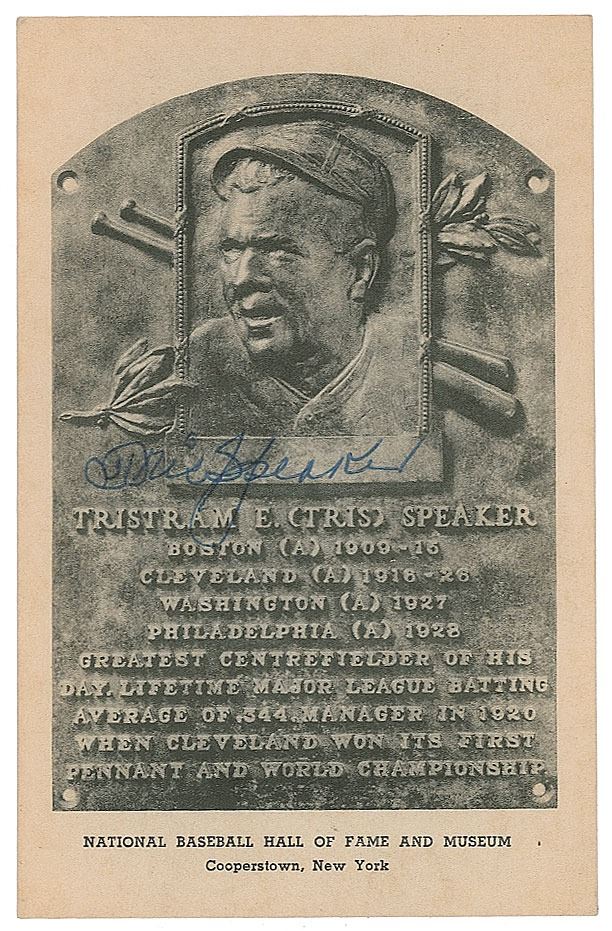 Tris Speaker
TRISTRAM E. (TRIS) SPEAKER
BOSTON (A) 1909-15
CLEVELAND (A) 1916-26
WASHINGTON (A) 1927
PHILADELPHIA (A) 1928
GREATEST CENTREFIELDER OF HIS
DAY. LIFETIME MAJOR LEAGUE BATTING
AVERAGE OF .344. MANAGER IN 1920
WHEN CLEVELAND WON ITS FIRST
PENNANT AND WORLD CHAMPIONSHIP.
NATIONAL BASEBALL HALL OF FAME AND MUSEUM
Cooperstown, New York